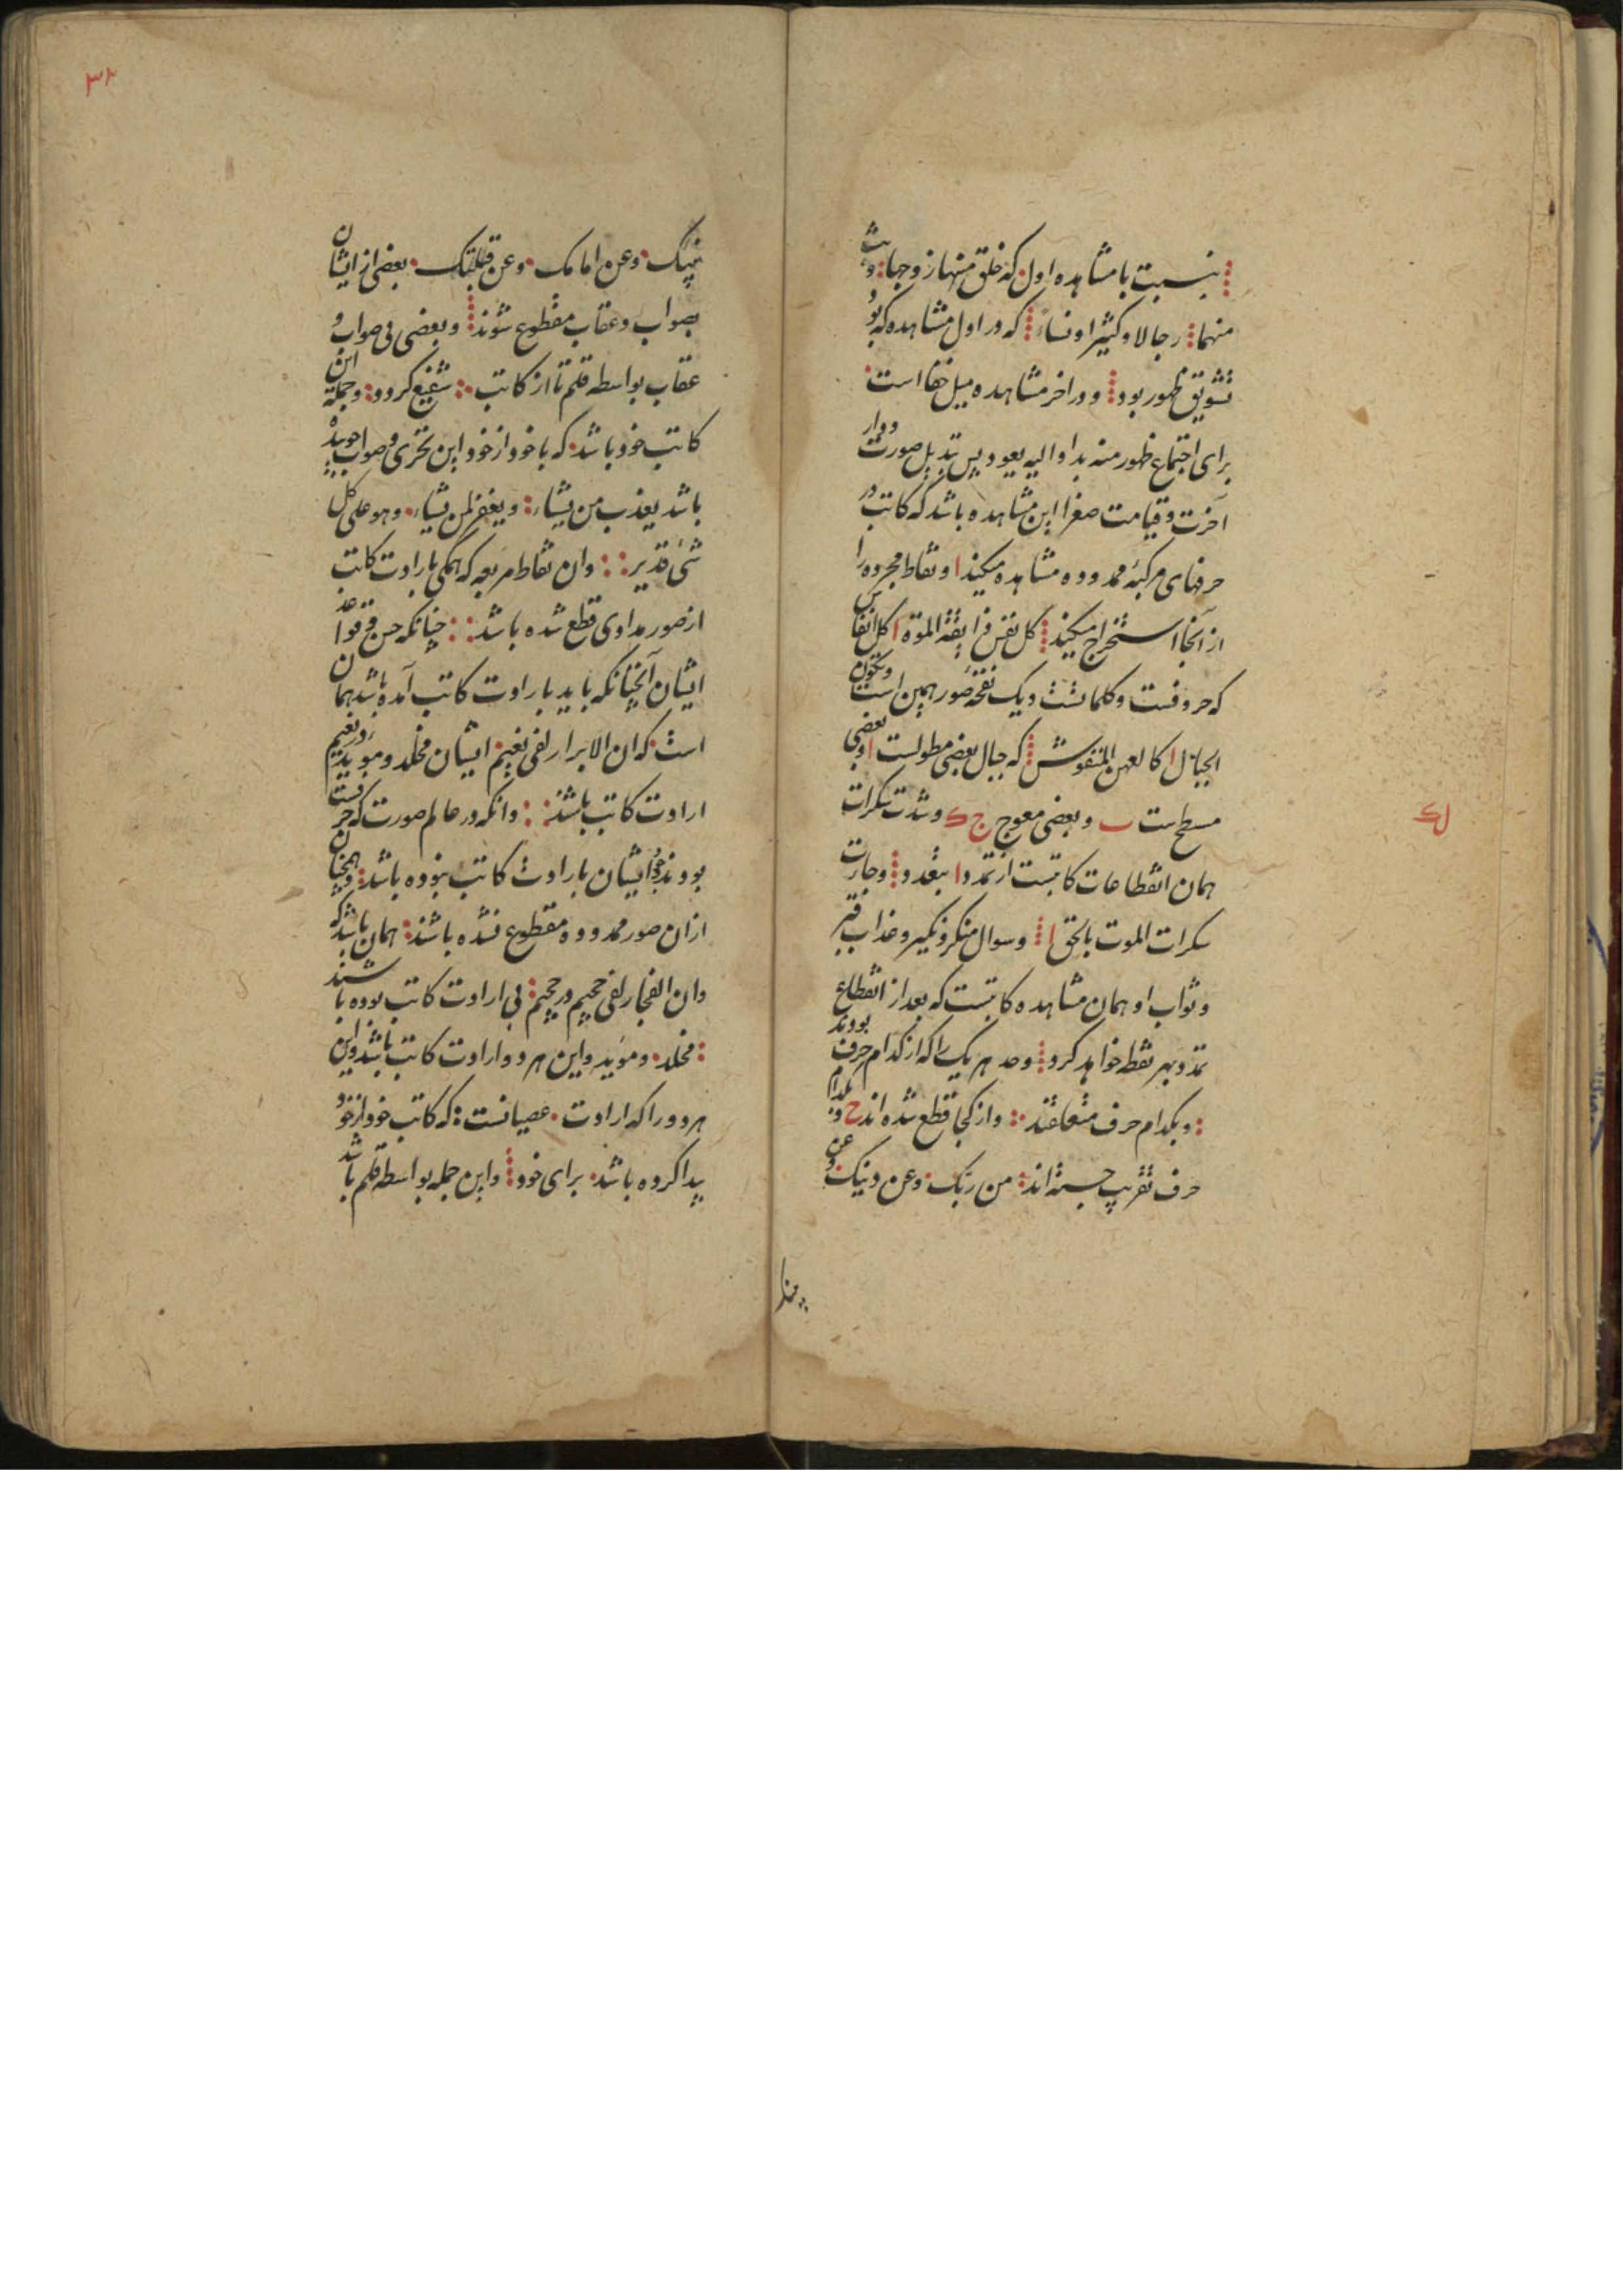 بنسبت با مشاهده اول که خلق منها زوجها وبث
منهما رجالا وکثیرا ونساء که در اول مشاهده که بود
تشویق ظهور بود و در اخر مشاهده میل خفا است
برای اجتماع ظهور منه بدا والیه یعود پس تبدیل صورت ودار
آخرت وقیامت صغرا این مشاهده باشد که کاتب در
حرفهای مرکبهٔ محدوده مشاهده میکند ا و نقاط مجرده را
از آنجا استخراج میکند کل نفس ذایقة الموة ا کل انفاس
که حروفست وکلماتست ویک نفخهٔ صور همین است وتکون
الجبال ا کالعهن المنفوش که جبال بعضی مطولست ا وبعضی
مسطح ست ب وبعضی معوج ج ک وشدت سکرات
همان انقطاعات کاتبست از تمدد ا بنقد و وجات
سکرات الموت بالحق ا وسوال منکر ونکیر وعذاب قبر
وثواب او همان مشاهده کاتبست که بعد از انقطاع
تمدد بهر نقطه خواهد کرد وحد هر یک را که از کدام حرف بودند
وبکدام حرف متعلقند واز کجا قطع شده اند ح وبکدام
حرف تقریب جسته اند من ربک وعن دینک وعن
نبیک وعن امامک وعن قبلتک بعضی از ایشان
بصواب وعقاب مقطوع شوند وبعضی بی صواب و
عقاب بواسطه قلم تا از کاتب شفیع کردد وجمله این
کاتب خود باشد که با خود از خود این تحری وصواب جوینده
باشد یعذب من یشاء ویغفر لمن یشاء وهو علی کل
شیٔ قدیر وان نقاط مربعه که همکی بارادت کاتب
از صور مدادی قطع شده باشد چنانکه حسن وقواعد
ایشان آنچنانکه باید بارادت کاتب آمده باشد همان
است که ان الابرار لفی نعیم ایشان مخلد وموید در نعیم
ارادت کاتب باشند وانکه در عالم صورت که حرفست
بودند وجود ایشان بارادت کاتب نبوده باشد وهمچنان
ازان صور محدوده مقطوع نشده باشند همان باشد که
وان الفجار لفی جحیم در جحیم بی ارادت کاتب بوده باشند
مخلد ومؤید واین هر دو ارادت کاتب باشد واین
هر دو را که ارادت عصیانست که کاتب خود از خود
پیدا کرده باشد برای خود واین جمله بواسطه قلم باشد